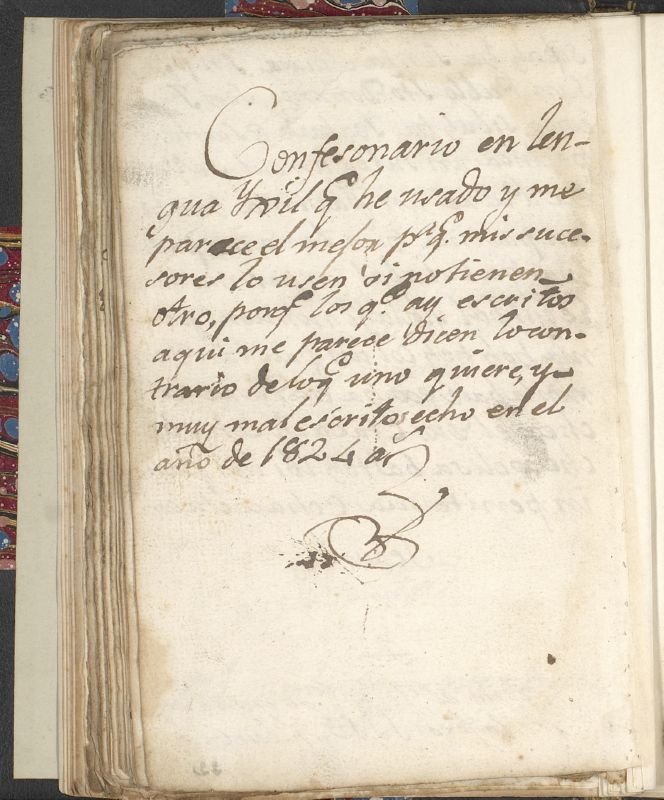 Confesonario en len-
gua Yxil q̃ he usado y me
parece el mejor p.ª q.ᵉ mis suce-
sores lo usen si no tienen
otro, porq̃ los q.ᵉ ay escritos
aqui me parece dicen lo con-
trario de loq̃ uno quiere, y
muy mal escritos echo en el
año de 1824 aˢ